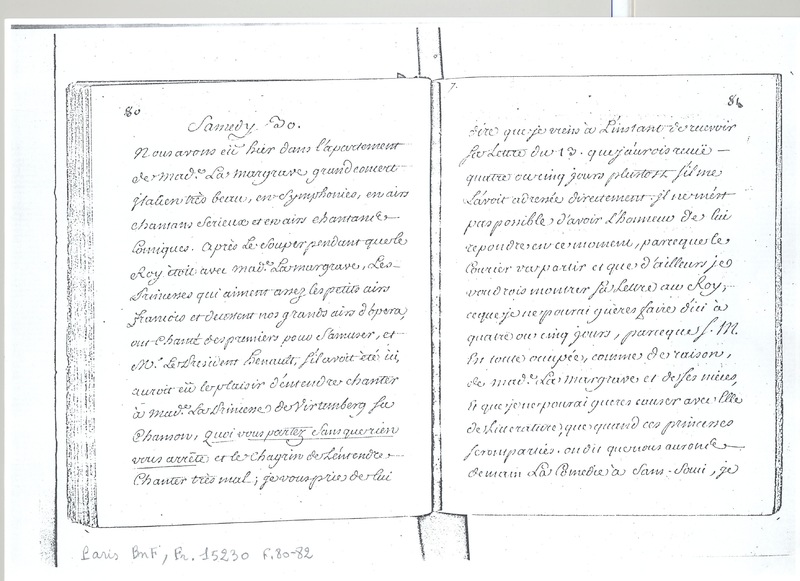 80
Samedy 30.
Nous avons eü hier dans l'apartement
de mad.e La margrave grand concert
jtalien très beau, en Symphonies, en airs
chantans Serieux et en airs chantans
Comiques. Après Le Souper pendant que le
Roy étoit avec mad.e La margrave, Les
Princesses qui aiment assez les petits airs
francois et detestent nos grands airs d'opera
out chanté des premiers pour S'amuser, et
Mr. Le President henault, s'il avoit été ici,
auroit eü le plaisir d'entendre chanter
à mad.e La Princesse de Virtemberg sa
Chanson, quoi vous partez Sans que rien
vous arrête et le chagrin de L'entendre
Chanter très mal; je vous prie de lui
7.
81
dire que je viens à L'instant de recevoir
sa Lettre du 13. que j'aurois reçuë
quatre ou cinq jours plustost s'il me
L'avoit adressée directement. il ne m'est
pas possible d'avoir L'honneur de lui
repondre en ce moment, parceque le
Courier va partir et que d'ailleurs je
voudrois montrer sa Lettre au Roy,
ceque je ne pourai guères faire d'ici à
quatre ou cinq jours, parceque S. M.
Est toute occupée, comme de raison,
de mad.e La margrave et de ses nièces,
Et que je ne pourai gueres causer avec Elle
de Litterature, que quand ces princesses
seront parties. on dit que nous aurons
demain La Comedie à Sans-Souci, je
Paris BnF, Fr. 15230 F. 80-82